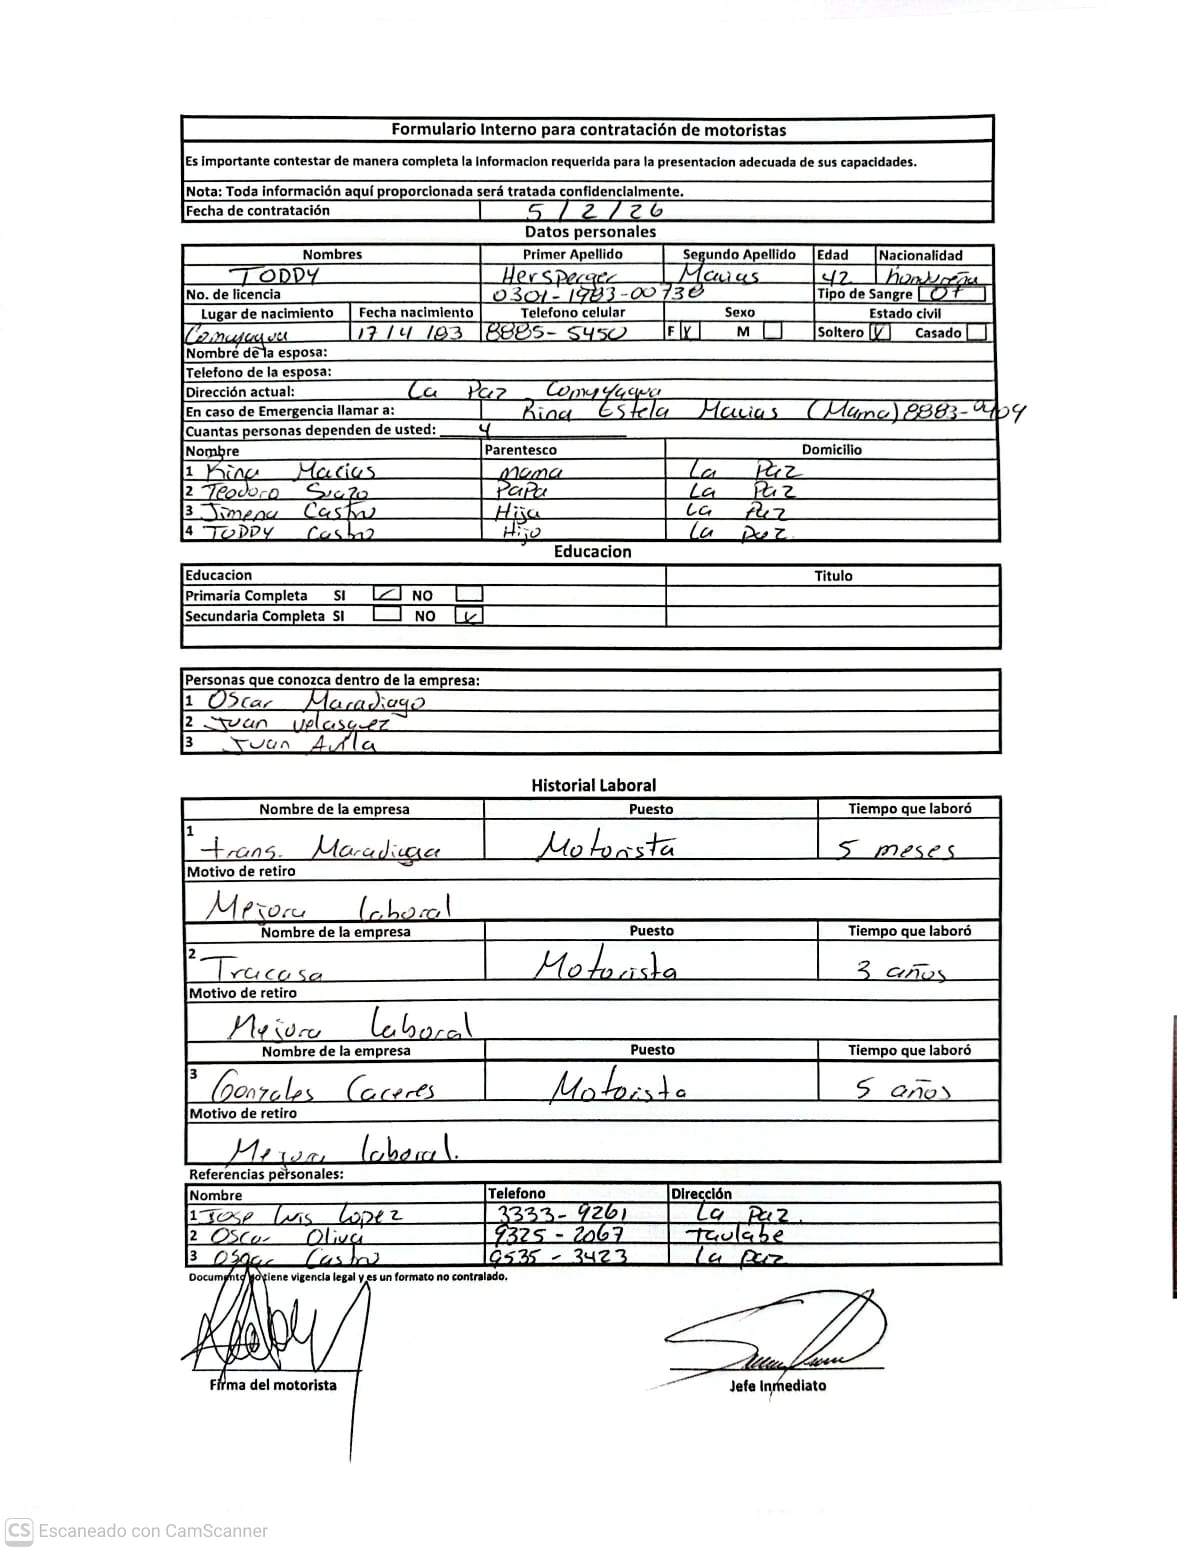 Formulario Interno para contratación de motoristas
Es importante contestar de manera completa la informacion requerida para la presentacion adecuada de sus capacidades.
Nota: Toda información aquí proporcionada será tratada confidencialmente.
Fecha de contratación 5/2/26
Datos personales
Nombres Primer Apellido Segundo Apellido Edad Nacionalidad
TODDY Hersperger Macias 42 hondureña
No. de licencia 0301-1983-00730 Tipo de Sangre O+
Lugar de nacimiento Fecha nacimiento Telefono celular Sexo Estado civil
Comayagua 17/4/83 8885-5450 F X M Soltero X Casado
Nombre de la esposa:
Telefono de la esposa:
Dirección actual: La Paz Comayagua
En caso de Emergencia llamar a: Rina Estela Macias (Mama) 8883-
Cuantas personas dependen de usted: 4
Nombre Parentesco Domicilio
1 Rina Macias mama La Paz
2 Teodoro Suazo Papa La Paz
3 Jimena Castro Hija La Paz
4 TODDY Castro Hijo La Paz
Educacion
Educacion Titulo
Primaria Completa SI ✓ NO
Secundaria Completa SI NO ✓
Personas que conozca dentro de la empresa:
1 Oscar Maradiago
2 Juan Velasquez
3 Juan Avila
Historial Laboral
Nombre de la empresa Puesto Tiempo que laboró
1 trans. Maradiaga Motorista 5 meses
Motivo de retiro
Mejora laboral
Nombre de la empresa Puesto Tiempo que laboró
2 Tracasa Motorista 3 años
Motivo de retiro
Mejora laboral
Nombre de la empresa Puesto Tiempo que laboró
3 Gonzales Caceres Motorista 5 años
Motivo de retiro
Mejora laboral.
Referencias personales:
Nombre Telefono Dirección
1 Jose Luis Lopez 3333-9261 La Paz.
2 Oscar Oliva 9325-2067 Taulabe
3 Osgar Castro 9535-3423 la paz
Documento no tiene vigencia legal y es un formato no contralado.
Firma del motorista Jefe Inmediato
CS Escaneado con CamScanner